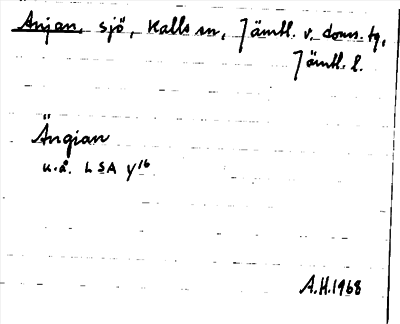 Anjan, sjö, Kalls sn, Jämtl. v. doms. tg,
Jämtl. l.
Ängian
u.å. LSA y16
A.H. 1968